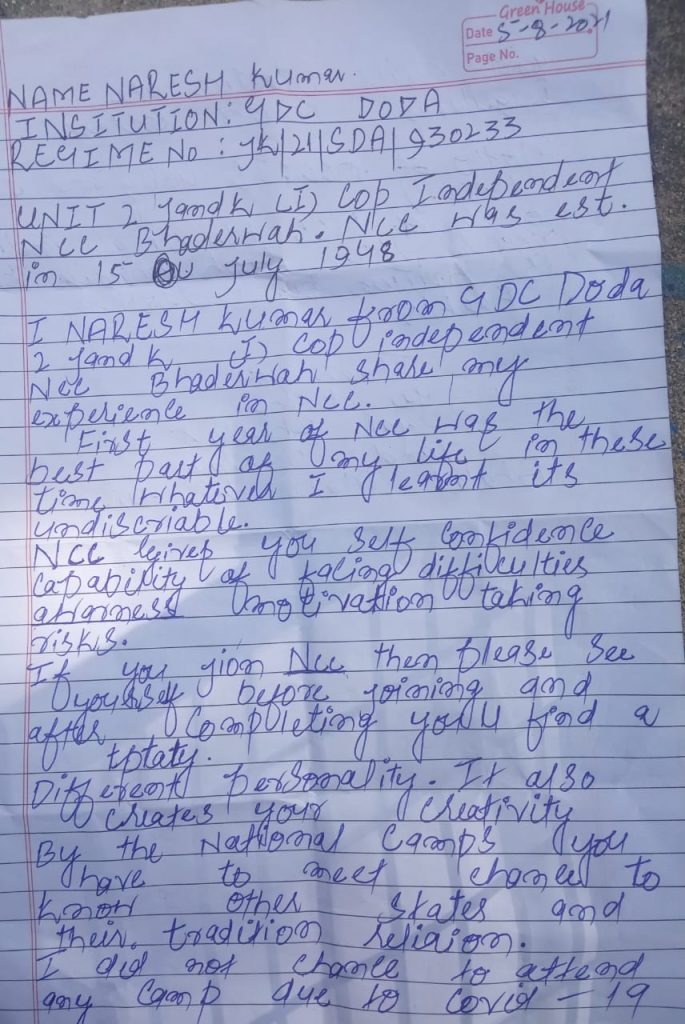 Green House
Date 5-8-2021
Page No.
NAME NARESH Kumar.
INSITUTION: GDC DODA
REGIME No : JK/21/SDA/930233
UNIT 2 Jand K (I) Cop Independent
Ncc Bhaderwah. Ncc was est.
in 15 July 1948
I NARESH Kumar from GDC Doda
2 Jand K (I) Cop independent
Ncc Bhaderwah share my
experience in Ncc.
First year of Ncc was the
best part of my life in these
time whatever I learnt its
undiscriable.
NCC gives you self confidence
capability of facing difficulties
awarness motivation taking
risks.
If you jion Ncc then please see
yourself before joining and
after completing you'll find a
tptaty.
Different personality. It also
creates your creativity
By the National Camps you
have to meet chance to
know other states and
their tradition religion.
I did not chance to attend
any camp due to covid-19